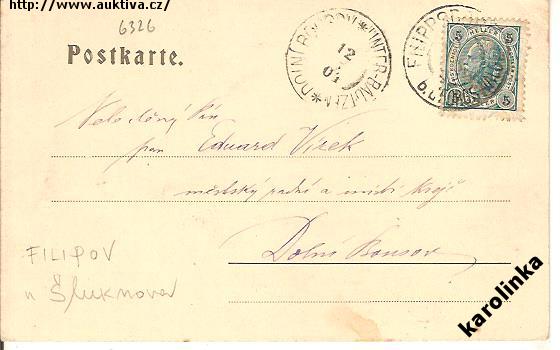 http://www.auktiva.cz/
6326
Postkarte.
DOLNÍ BOUSOV * UNTER-BAUTZEN *
12
04
FILIPPSD
5 5
5 5
pan Eduard Vízek
městský radní a
Dolní Bousov
FILIPOV
u Šluknova
karolinka